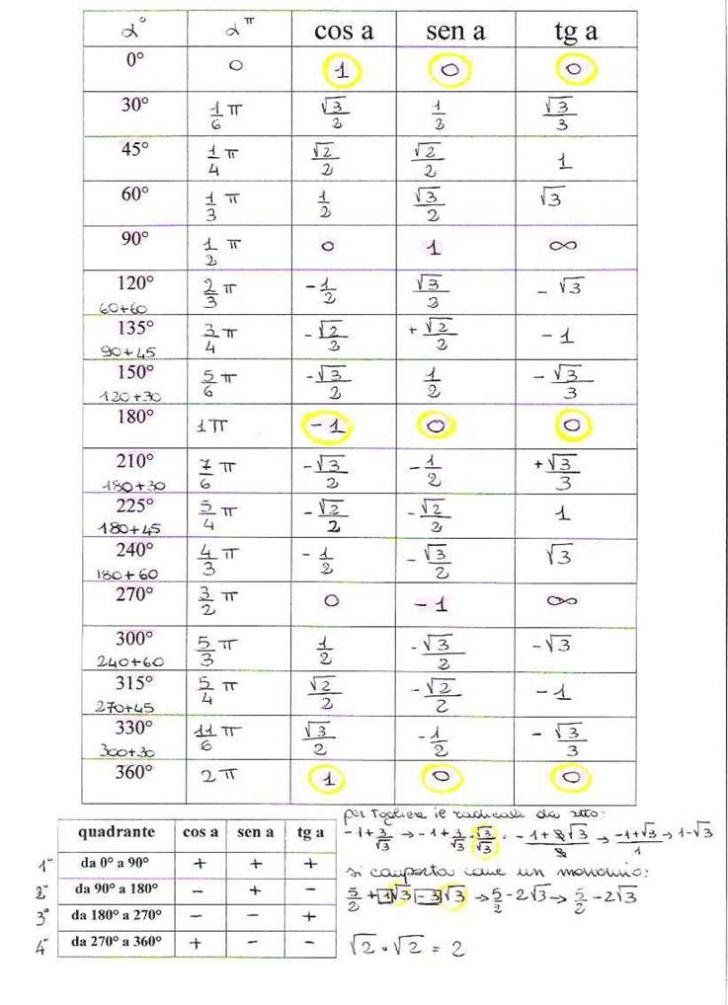 α° α^π cos a sen a tg a
0° 0 1 0 0
30° 1/6 π √3/2 1/2 √3/3
45° 1/4 π √2/2 √2/2 1
60° 1/3 π 1/2 √3/2 √3
90° 1/2 π 0 1 ∞
120° 2/3 π -1/2 √3/2 - √3
60+60
135° 3/4 π -√2/2 +√2/2 - 1
90+45
150° 5/6 π -√3/2 1/2 - √3/3
120+30
180° 1π - 1 0 0
210° 7/6 π -√3/2 -1/2 +√3/3
180+30
225° 5/4 π -√2/2 -√2/2 1
180+45
240° 4/3 π - 1/2 - √3/2 √3
180+60
270° 3/2 π 0 - 1 ∞
300° 5/3 π 1/2 -√3/2 -√3
240+60
315° 5/4 π √2/2 -√2/2 - 1
270+45
330° 11/6 π √3/2 -1/2 - √3/3
300+30
360° 2π 1 0 0
quadrante cos a sen a tg a
1° da 0° a 90° + + +
2° da 90° a 180° - + -
3° da 180° a 270° - - +
4° da 270° a 360° + - -
per togliere il radicale da sotto:
-1+3/√3 → -1+3/√3 · √3/√3 = -1+3√3/3 → -1+√3/1 → 1-√3
si comporta come un monomio:
5/2 +1√3 -3√3 → 5/2 -2√3 → 5/2 -2√3
√2 · √2 = 2